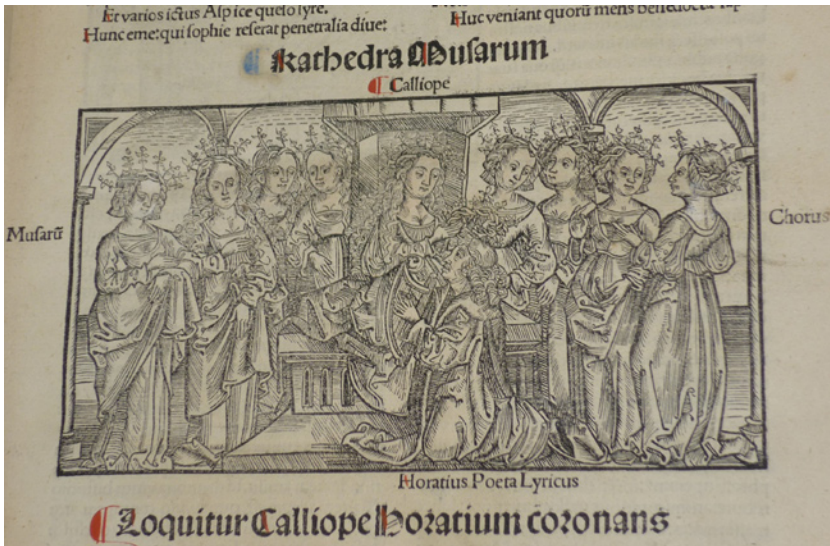 Et varios ictus Aspice queso lyre.
Hunc eme: qui sophie reserat penetralia diue:
Huc veniant quorū mens
Kathedra Musarum
Calliope
Musarū
Chorus
Horatius Poeta Lyricus
Loquitur Calliope Horatium coronans